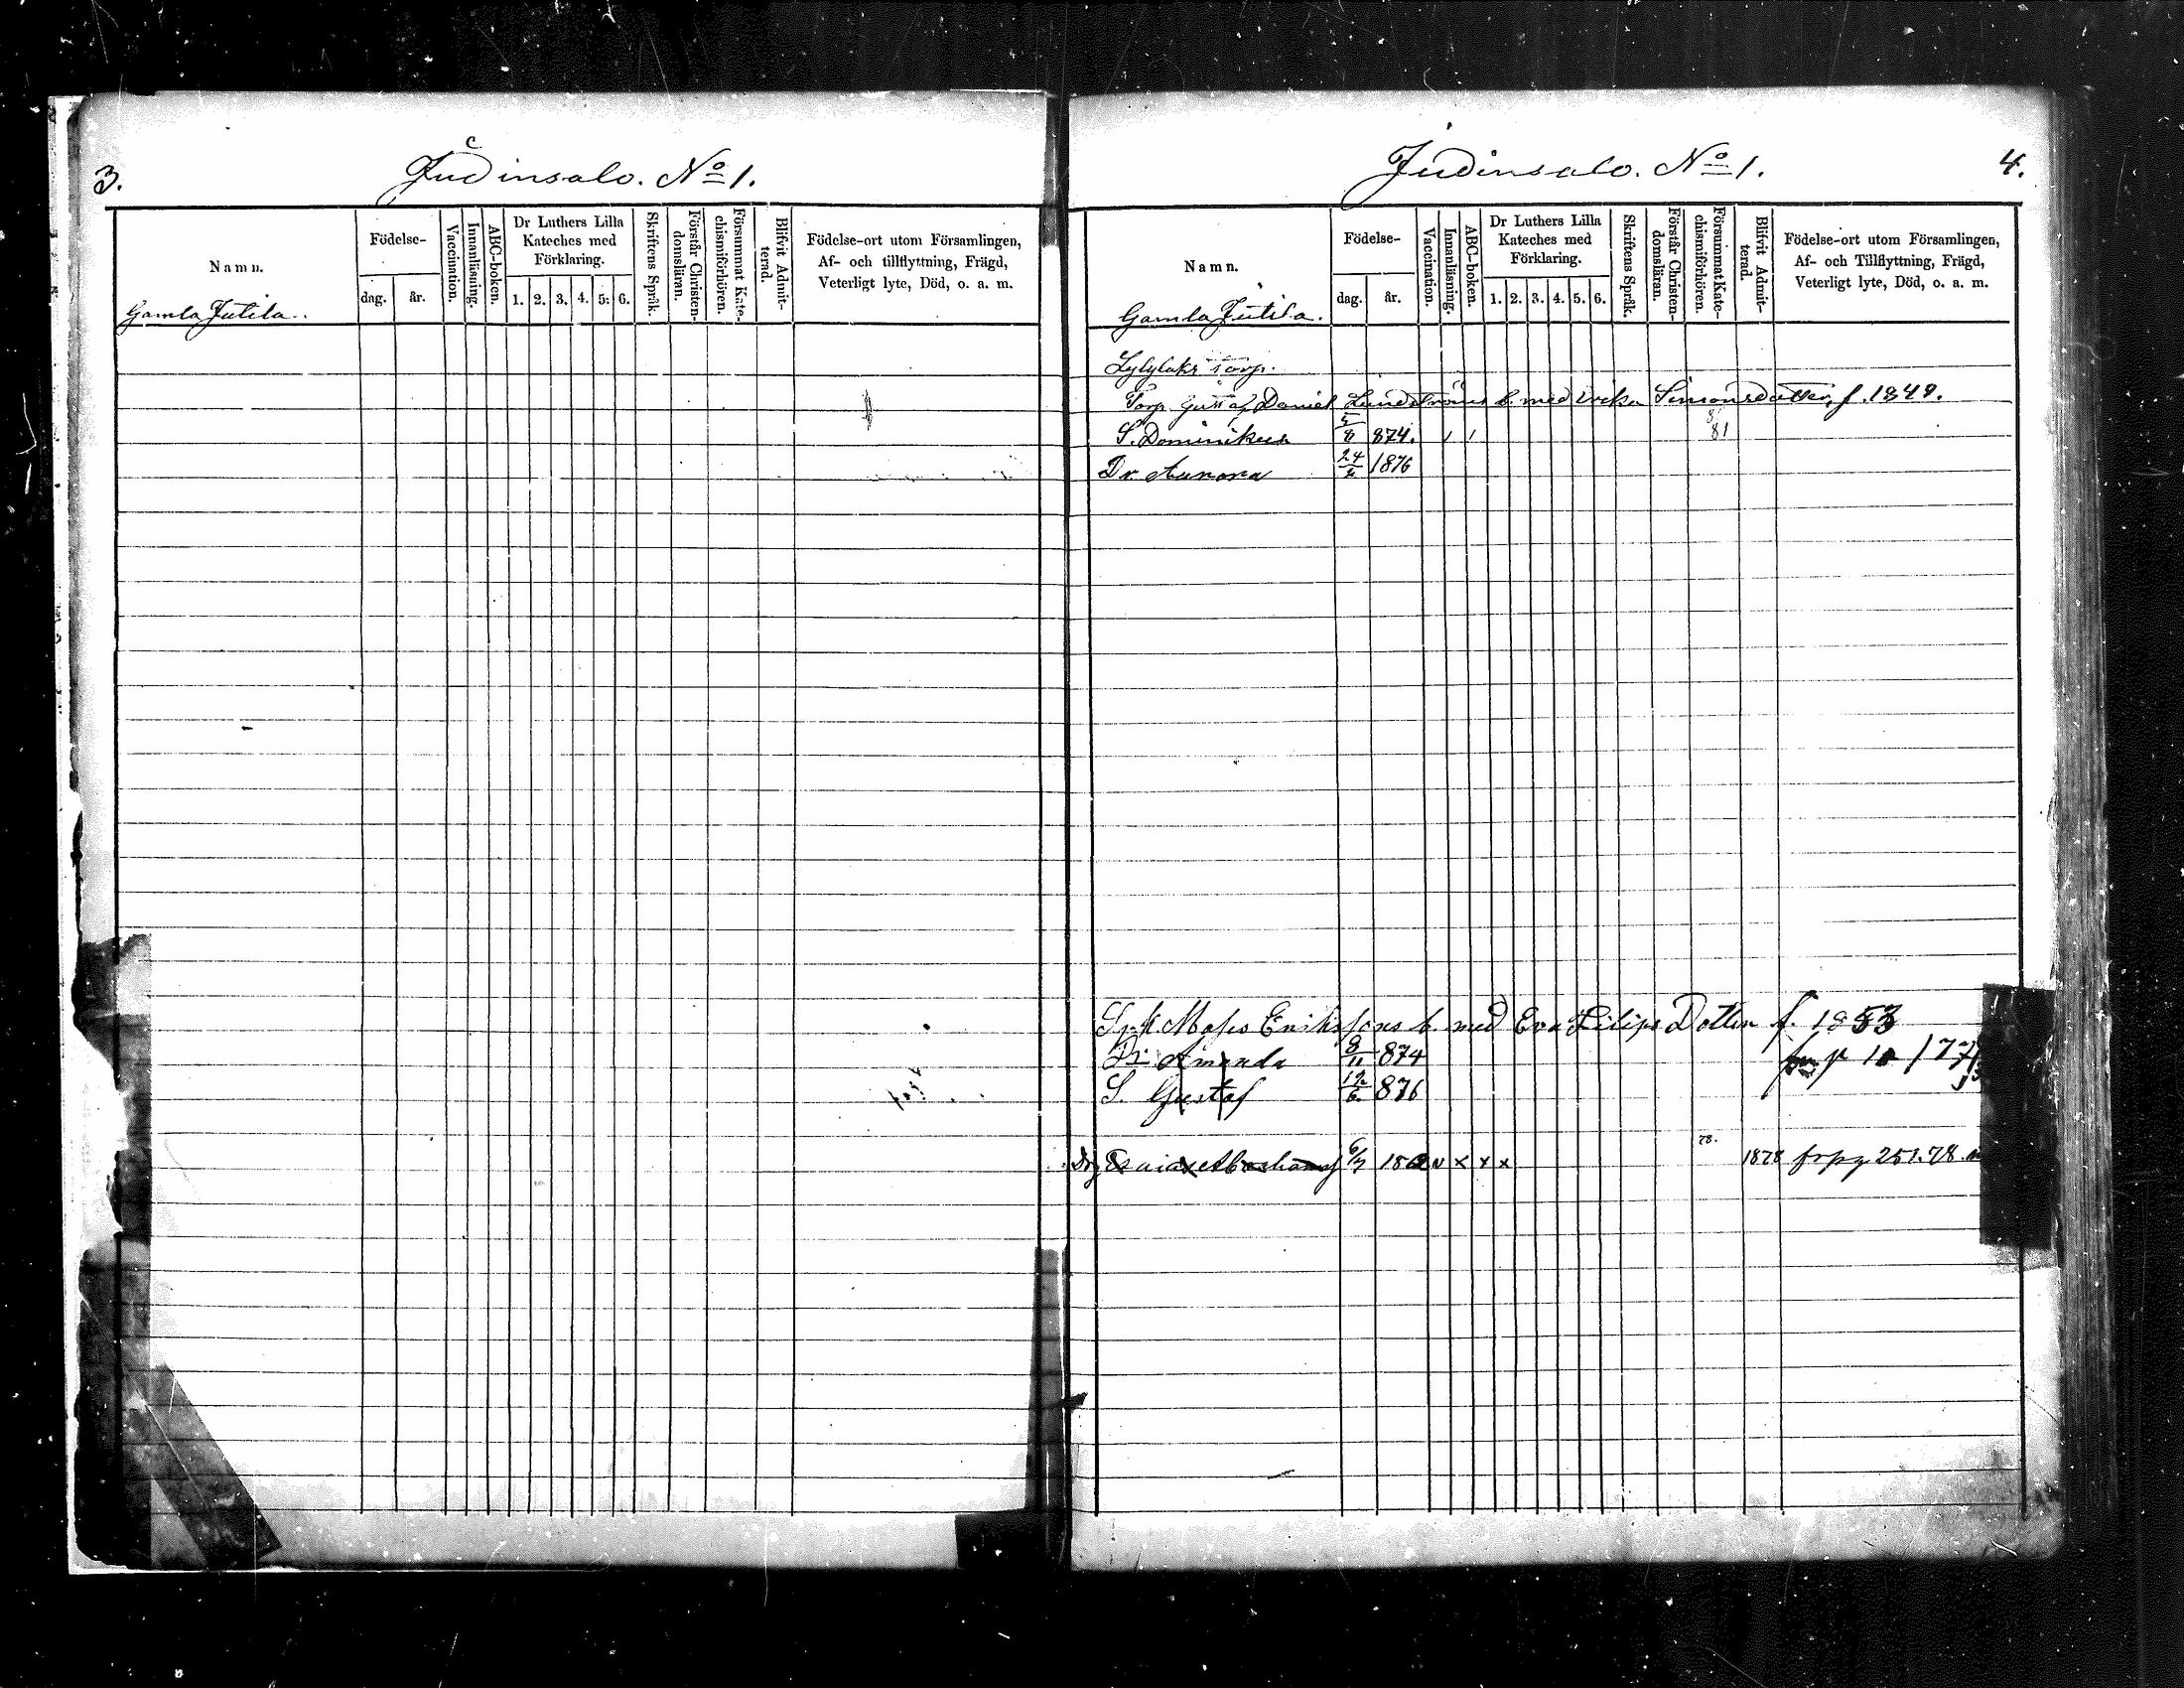 3.
Judinsalo. No 1.
Namn.
Födelse-
dag.
år.
Vaccination.
Innanläsning.
ABC-boken.
Dr Luthers Lilla
Kateches med
Förklaring.
1. 2. 3. 4. 5. 6.
Skriftens Språk.
Förstår Christen-
domsläran.
Försummat Kate-
chismiförhören.
Blifvit Admit-
terad.
Födelse-ort utom Församlingen,
Af- och tillflyttning, Frägd,
Veterligt lyte, Död, o. a. m.
Gamla Jutila.
Judinsalo. No 1.
4.
Namn.
Födelse-
dag.
år.
Vaccination.
Innanläsning.
ABC-boken.
Dr Luthers Lilla
Kateches med
Förklaring.
1. 2. 3. 4. 5. 6.
Skriftens Språk.
Förstår Christen-
domsläran.
Försummat Kate-
chismiförhören.
Blifvit Admit-
terad.
Födelse-ort utom Församlingen,
Af- och Tillflyttning, Frägd,
Veterligt lyte, Död, o. a. m.
Gamla Jutila.
Lylylaks torp.
Torp. Gustaf Daniel Lundströms b. med Simonsdotter, f. 1849.
S. Dominikus 5/8 874. 81
Dr. Aurora 24/2 1876
Mases Erikssons b. med Eva Filips Dotter f. 1853
Dr. Amanda 8/11 874
S. Gustaf 12/6 876
6/7 v x x x 78. 1878 fr pg 251.78.